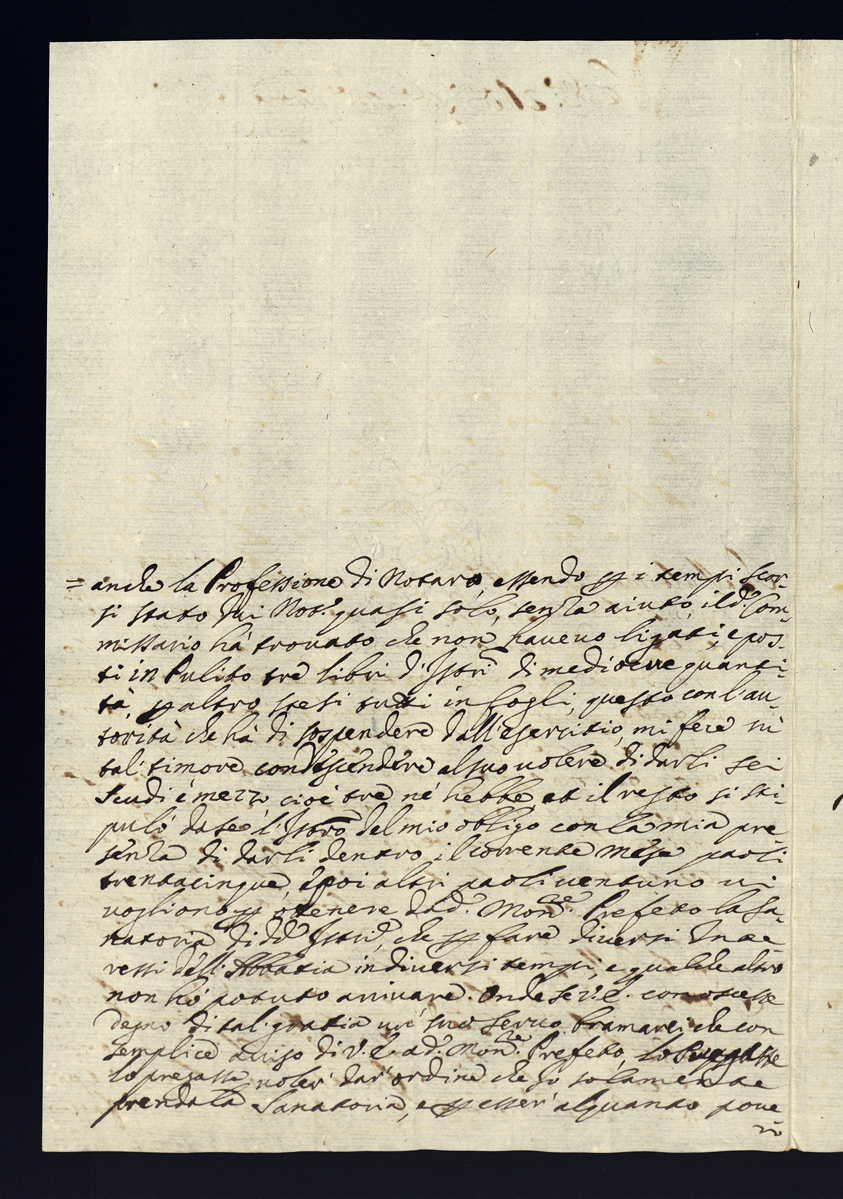 = anche la Professione di Notaro, essendo p i tempi scor-
si stato qui Not.o quasi solo, senza aiuto, il d.o Com-
missario hà trovato che non havevo ligati, e pos-
ti in Pulito tre libri d'Istri di mediocre quanti-
tà, p altro stesi tutti in fogli, questo con l'au-
torità che hà di sospendere dall'esercitio, mi fece in
tal timore condescendere al suo volere di darli sei
scudi e mezzo, cioè tre ne hebbe, et il resto si sti-
pulò da se l'Istro del mio obligo con la mia pre
senza di darli dentro il corrente mese paoli
trentacinque, e poi altri paoli ventuno vi
vogliono p ottenere da d.o Mon.re Prefetto la Sa-
natoria di dd.i Istri, che p fare diversi Inte
ressi dell'Abbatia in diversi tempi, e qualche altro
non hò potuto arrivare. Onde se V.E. conoscesse
degno di tal gratia un suo servo bramarei che con
semplice aviso di V.E. a d.o Mon.re Prefetto,
lo pregasse voler dar'ordine che io solamente
prenda la Sanatoria, e p esser'alquanto pove
ro